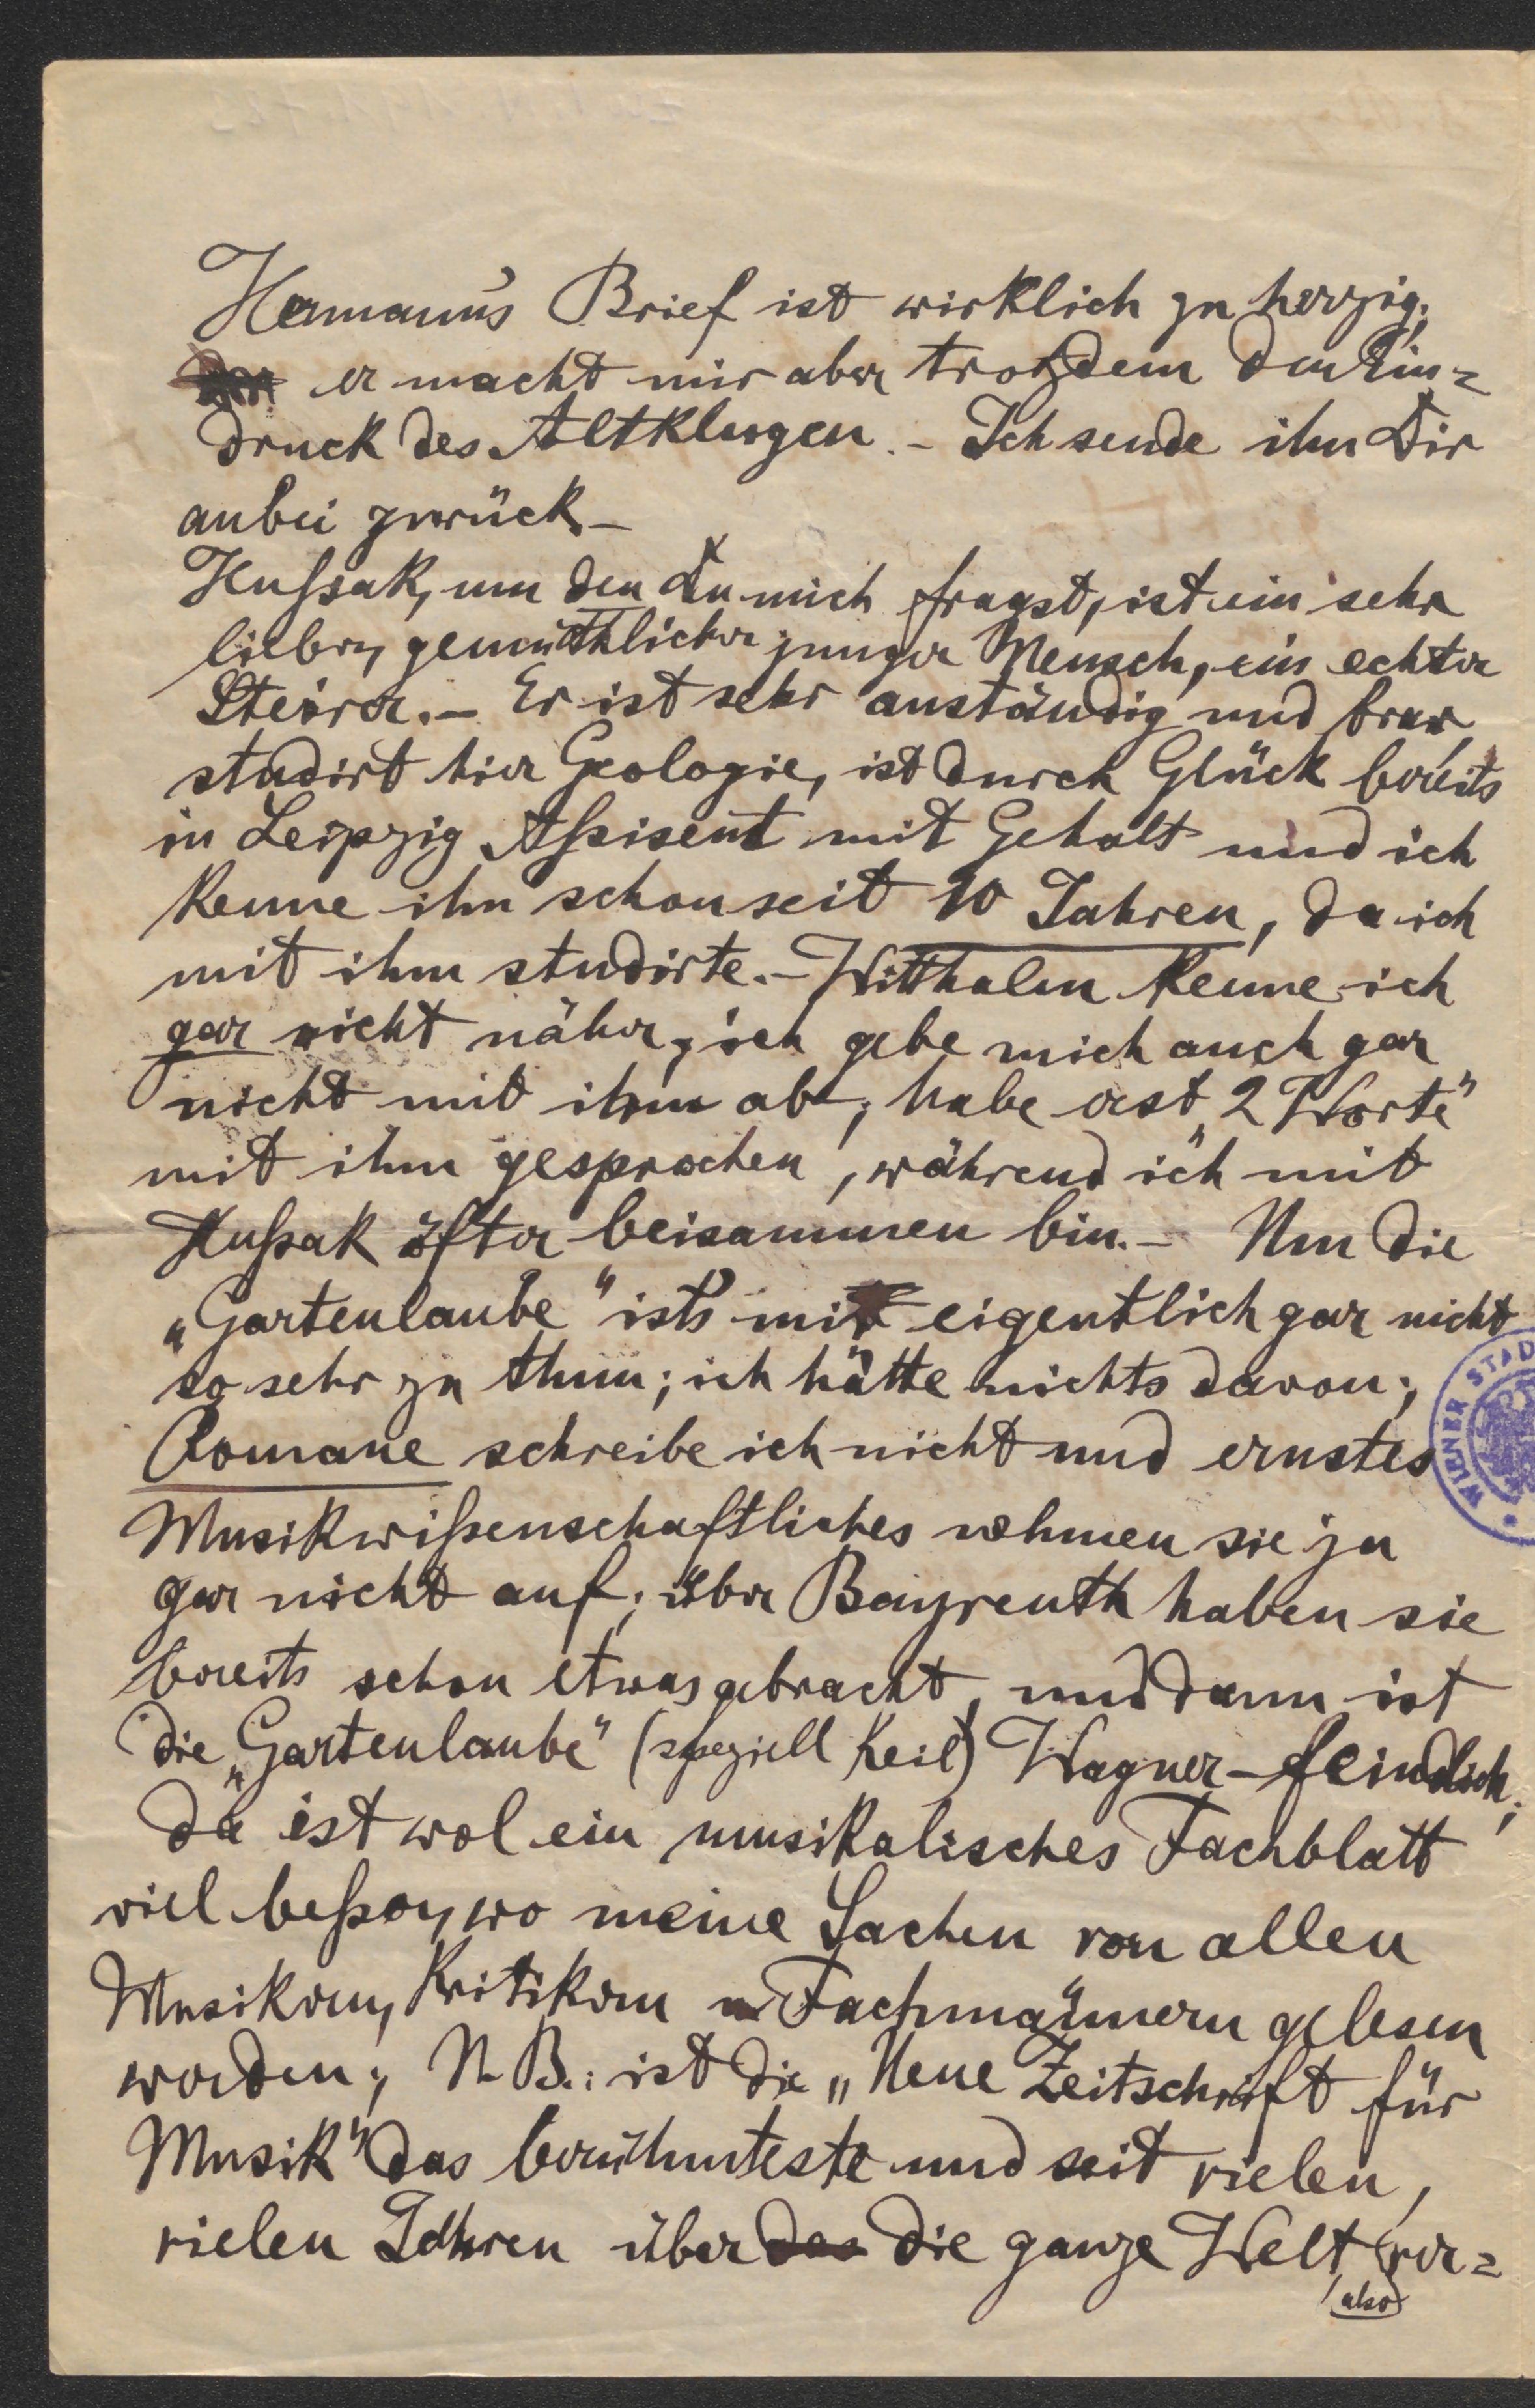 Hermann's Brief ist wirklich zu herzig;
er macht mir aber trotzdem den Ein=
druck des Altklugen. – Ich sende ihn Dir
anbei zurück –
Hußsak, um den Du mich fragst, ist ein sehr
lieber, gemüthlicher junger Mensch, ein echter
Steirer. – Er ist sehr anständig und brav,
studirt hier Geologie, ist durch Glück bereits
in Leipzig Aßisent mit Gehalt und ich
kenne ihn schon seit 10 Jahren, da ich
mit ihm studirte. – Witthalm kenne ich
gar nicht näher, ich gebe mich auch gar
nicht mit ihm ab; habe erst „2 Worte"
mit ihm gesprochen, während ich mit
Hußak öfter beisammen bin. – Um die
„Gartenlaube" ist's mir eigentlich gar nicht
so sehr zu thun; ich hätte nichts davon;
Romane schreibe ich nicht und ernstes
Musikwißenschaftliches nehmen sie ja
gar nicht auf; über Bayreuth haben sie
bereits schon etwas gebracht, und dann ist
die „Gartenlaube" (speziell Keil) Wagner-feindlich;
da ist wol ein musikalisches Fachblatt
viel beßer, wo meine Sachen von allen
Musikern, Kritikern u Fachmännern gelesen
werden; N.B.: ist die „Neue Zeitschrift für
Musik" das berühmteste und seit vielen,
vielen Jahren über das die ganze Welt ver=
also
WIENER STAD